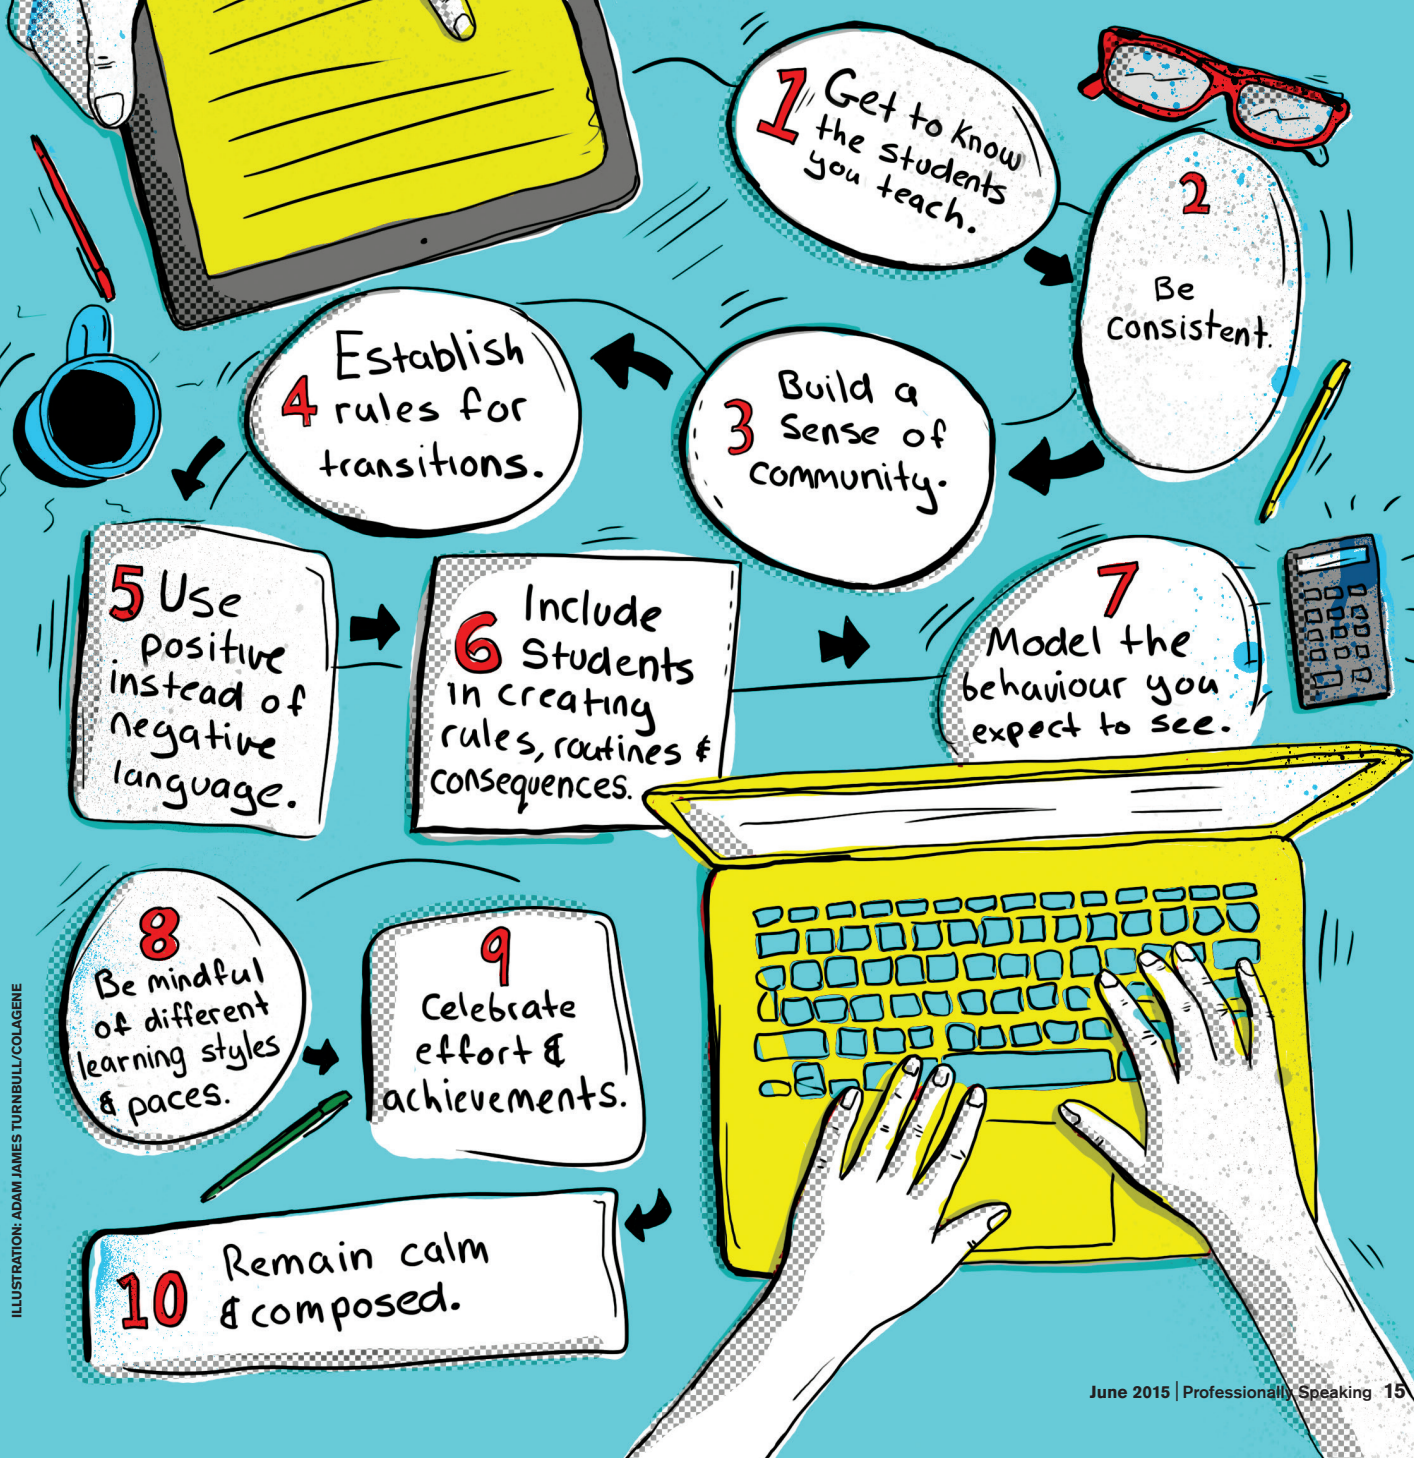 1 Get to know
the students
you teach.
2
Be
consistent.
3 Build a
sense of
community.
4 Establish
rules for
transitions.
5 Use
positive
instead of
negative
language.
6 Include
Students
in creating
rules, routines &
consequences.
7
Model the
behaviour you
expect to see.
8
Be mindful
of different
learning styles
& paces.
9
Celebrate
effort &
achievements.
10 Remain calm
& composed.
ILLUSTRATION: ADAM JAMES TURNBULL/COLAGENE
June 2015 | Professionally Speaking 15